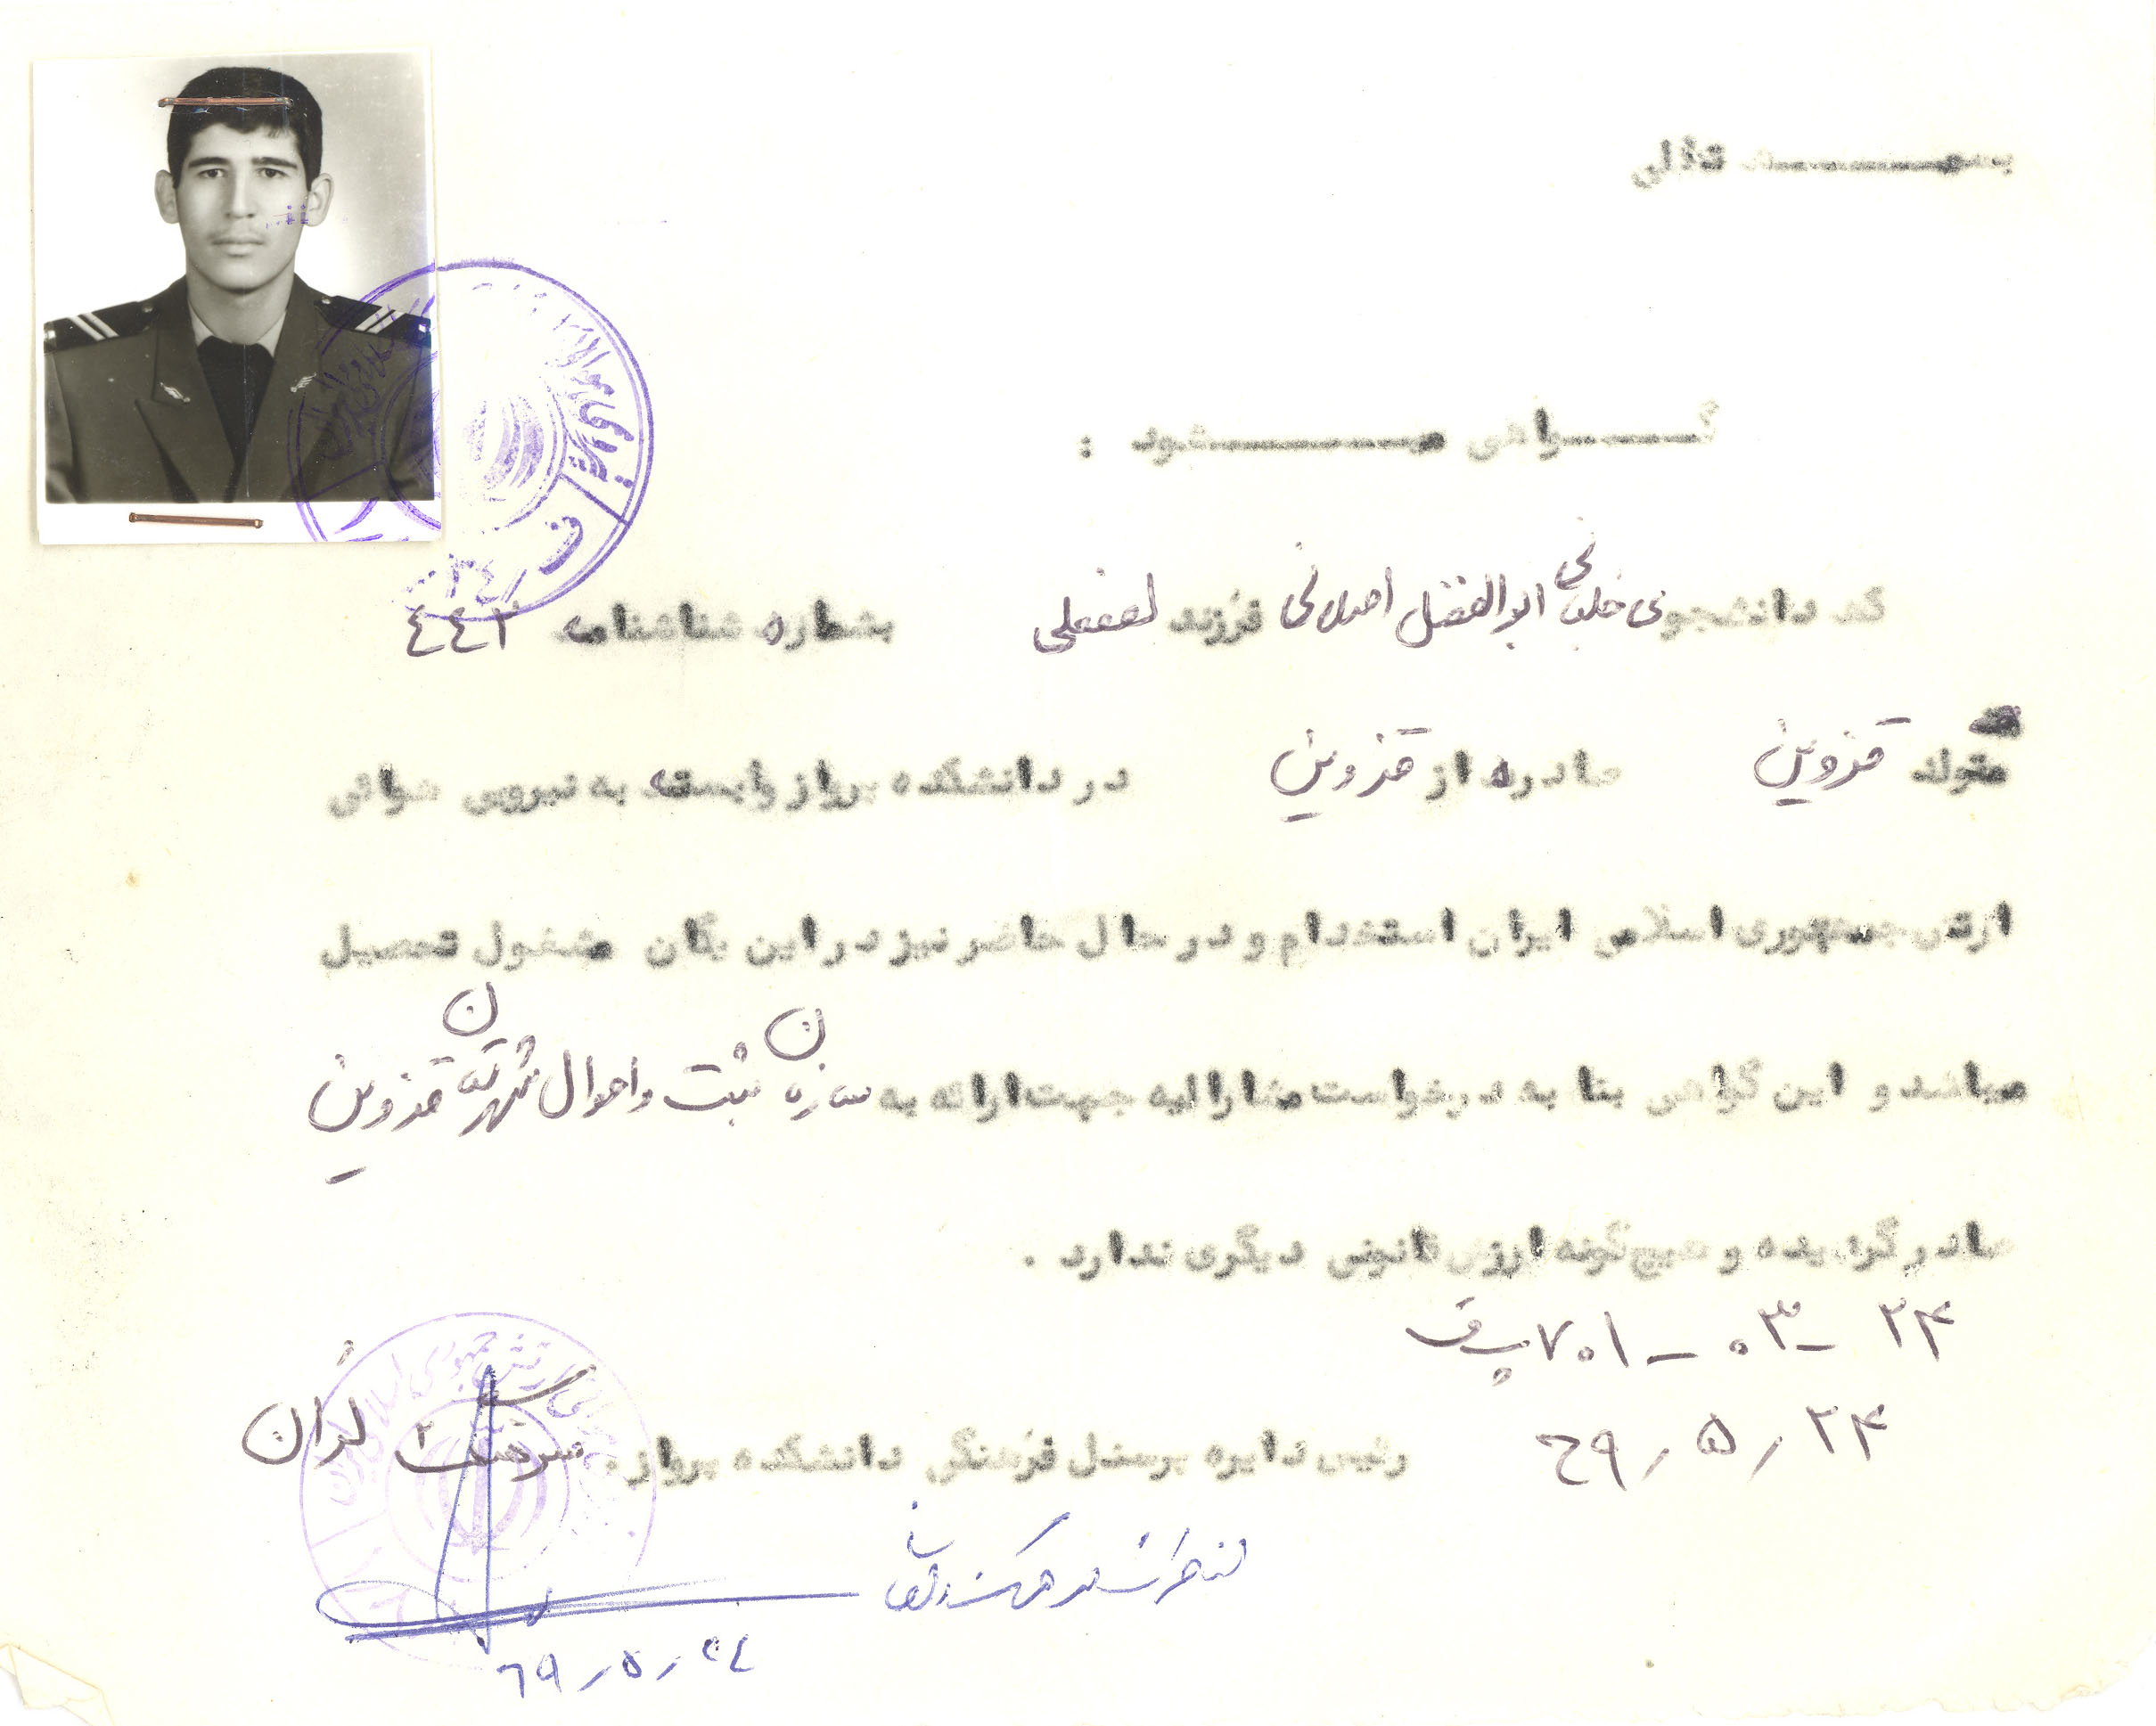 بسمه تعالی
گواهی میشود :
که دانشجوی خلبانی ابوالفضل اصلانی فرزند لطفعلی بشماره شناسنامه ٤٤٢
متولد قزوین صادره از قزوین در دانشکده پرواز وابسته به نیروی هوائی
ارتش جمهوری اسلامی ایران استخدام و در حال حاضر نیز در این یگان مشغول تحصیل
میباشد و این گواهی بنا به درخواست مشارالیه جهت ارائه به سازمان ثبت و احوال شهرستان قزوین
صادر گردیده و هیچگونه ارزش قانونی دیگری ندارد .
۲۴ - ۰۳ - ۷۰۱
۶۹/۵/۲۴
رئیس دایره پرسنل فرهنگی دانشکده پرواز.
۶۹/۵/۲٤